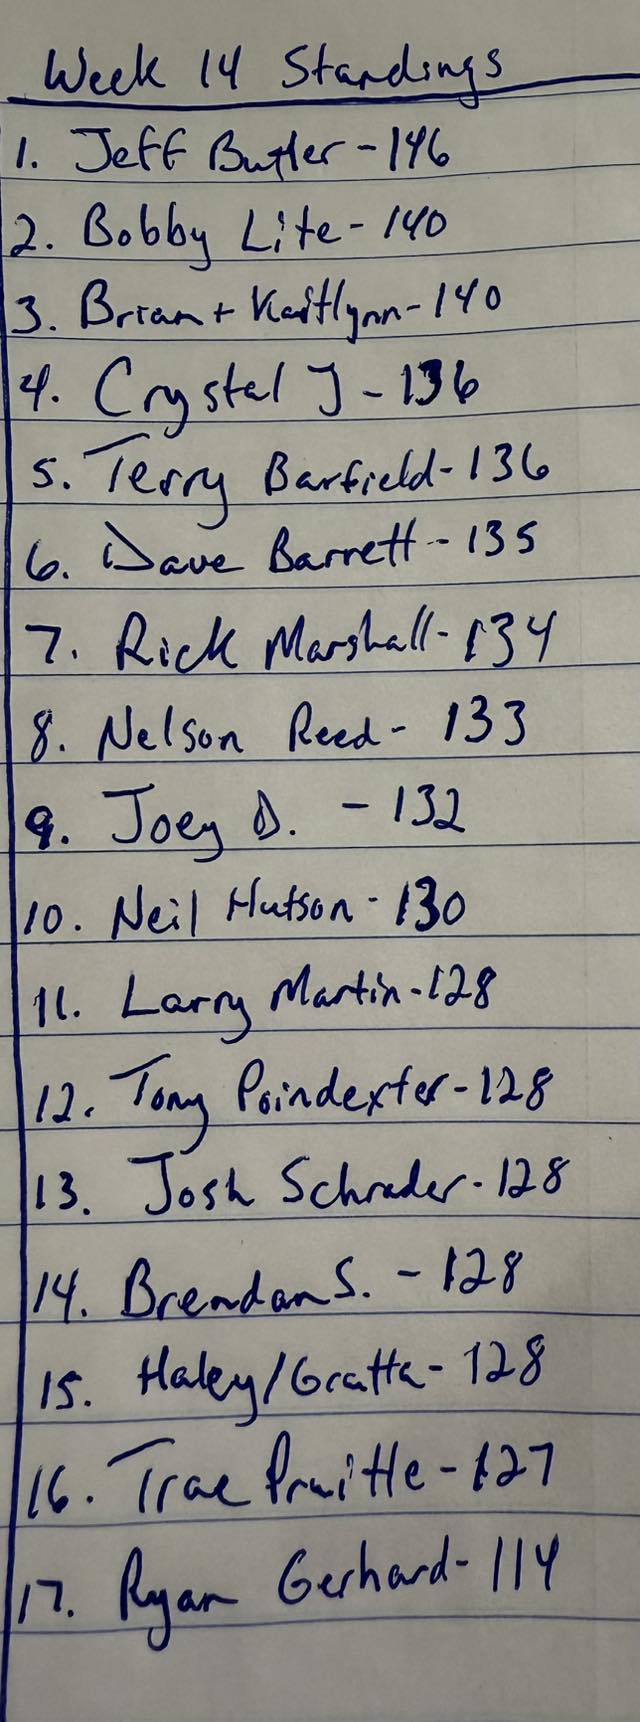 Week 14 Standings
1. Jeff Butler - 146
2. Bobby Lite - 140
3. Brian + Kaitlynn - 140
4. Crystal J - 136
5. Terry Barfield - 136
6. Dave Barrett - 135
7. Rick Marshall - 134
8. Nelson Reed - 133
9. Joey D. - 132
10. Neil Hutson - 130
11. Larry Martin - 128
12. Tony Poindexter - 128
13. Josh Schrader - 128
14. Brendan S. - 128
15. Haley/Gratta - 128
16. Trae Pruitte - 127
17. Ryan Gerhard - 114